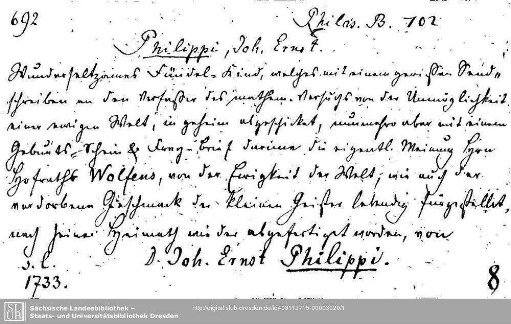 692 Philos. B. 702
Philippi, Joh. Ernst.
Wunderseltzames Fündel-Kind, welches mit einem gewissen Send-
schreiben an den Verfasser des mathem. Versuchs von der Unmöglichkeit
einer ewigen Welt, in geheim abgeschicket, nunmehro aber mit einem
Geburts-Schein & Frag-Brief darinne die eigentl. Meinung Hrn
Hofraths Wolfens, von der Ewigkeit der Welt, wie auch der
verdorbene Geschmack der kleinen Geister lebendig fürgestellet,
nach seiner Heimath wieder abgefertiget worden, von
D. Joh. Ernst Philippi.
s. l.
1733. 8
SLUB
Sächsische Landesbibliothek –
Staats- und Universitätsbibliothek Dresden